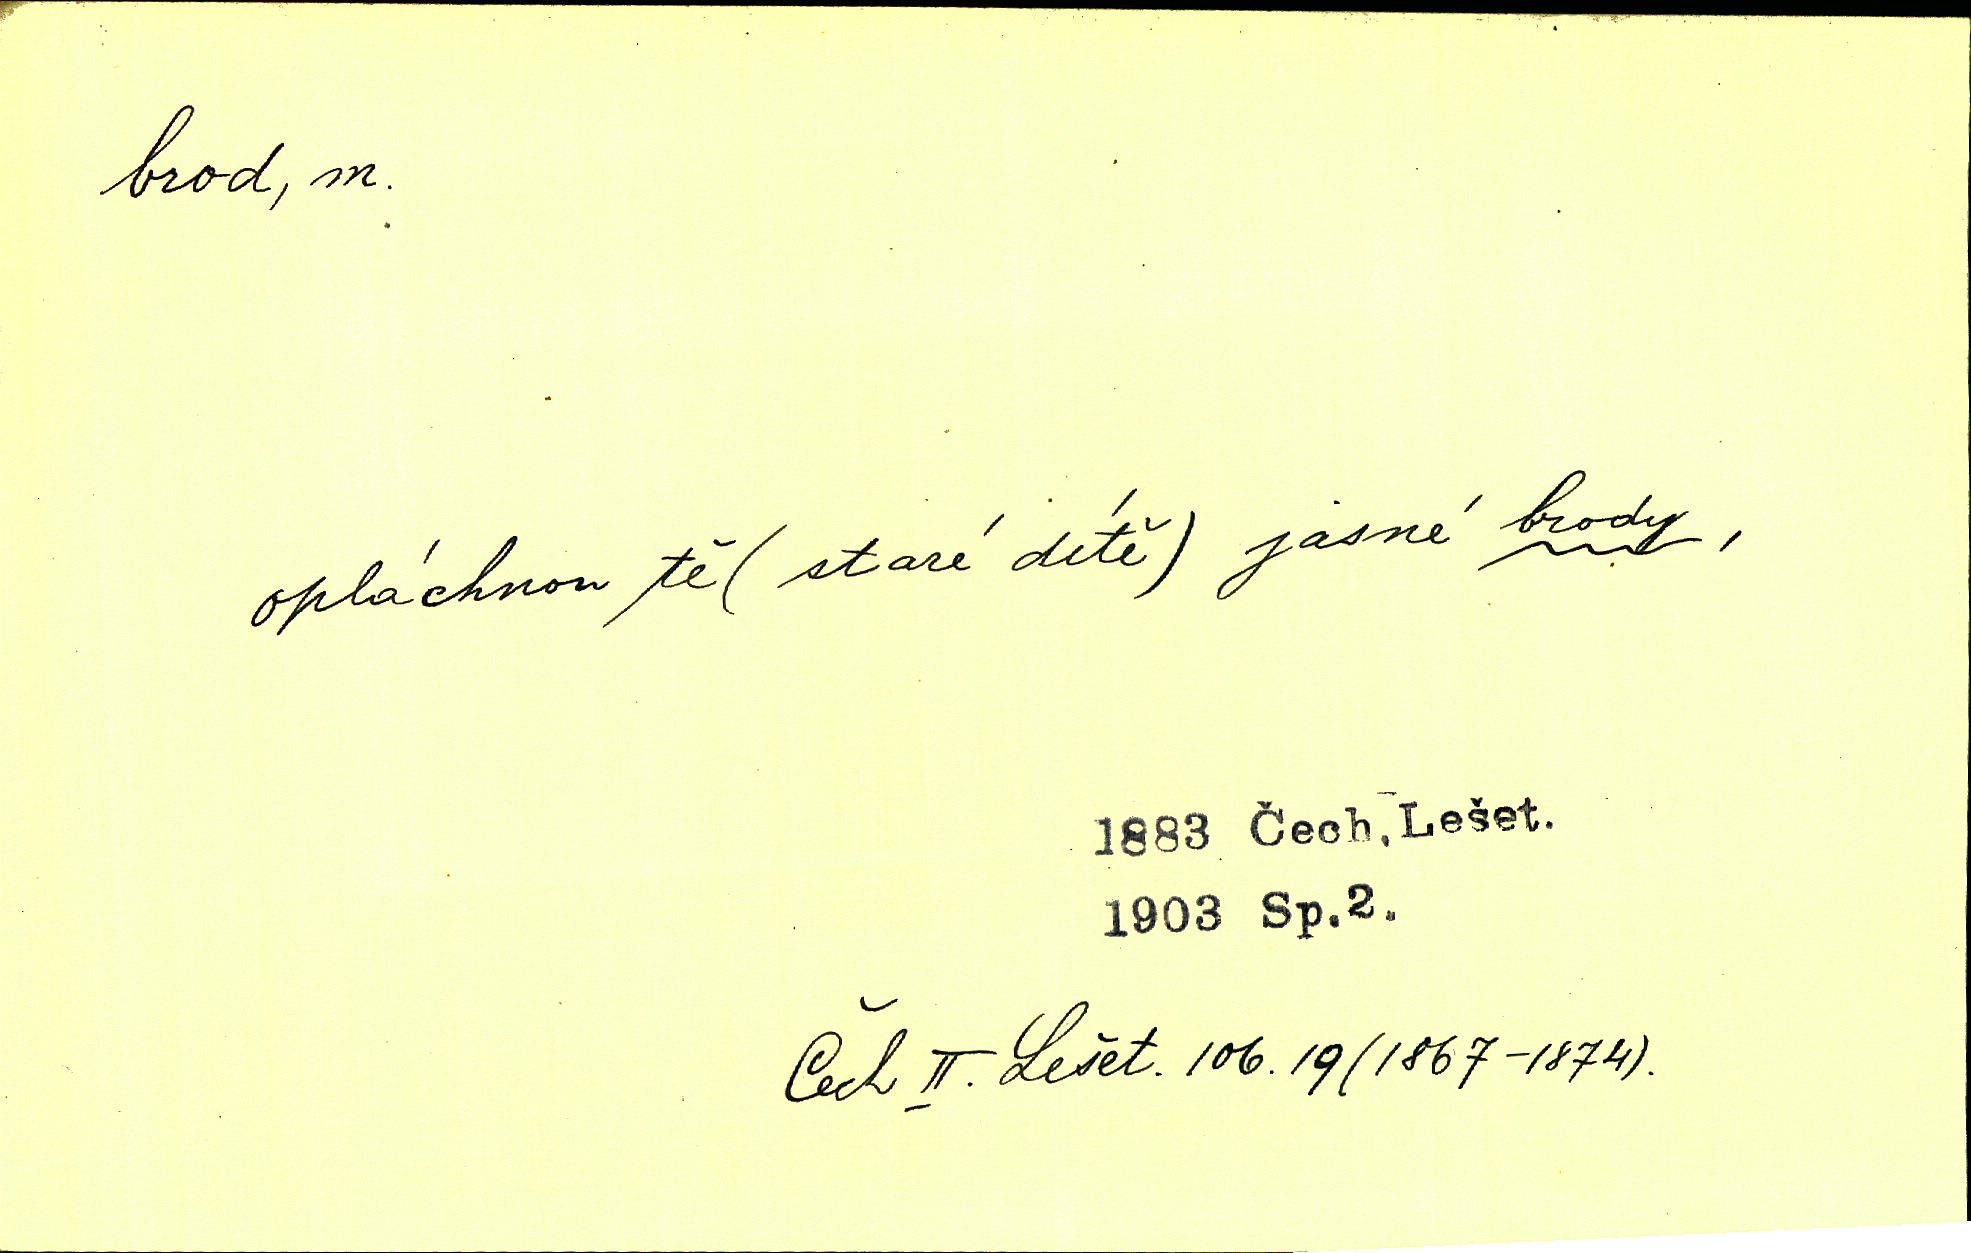 brod, m.
opláchnou tě (staré dítě) jasné brody,
1883 Čech, Lešet.
1903 Sp.2.
Čech II. Lešet. 106. 19 (1867-1874).